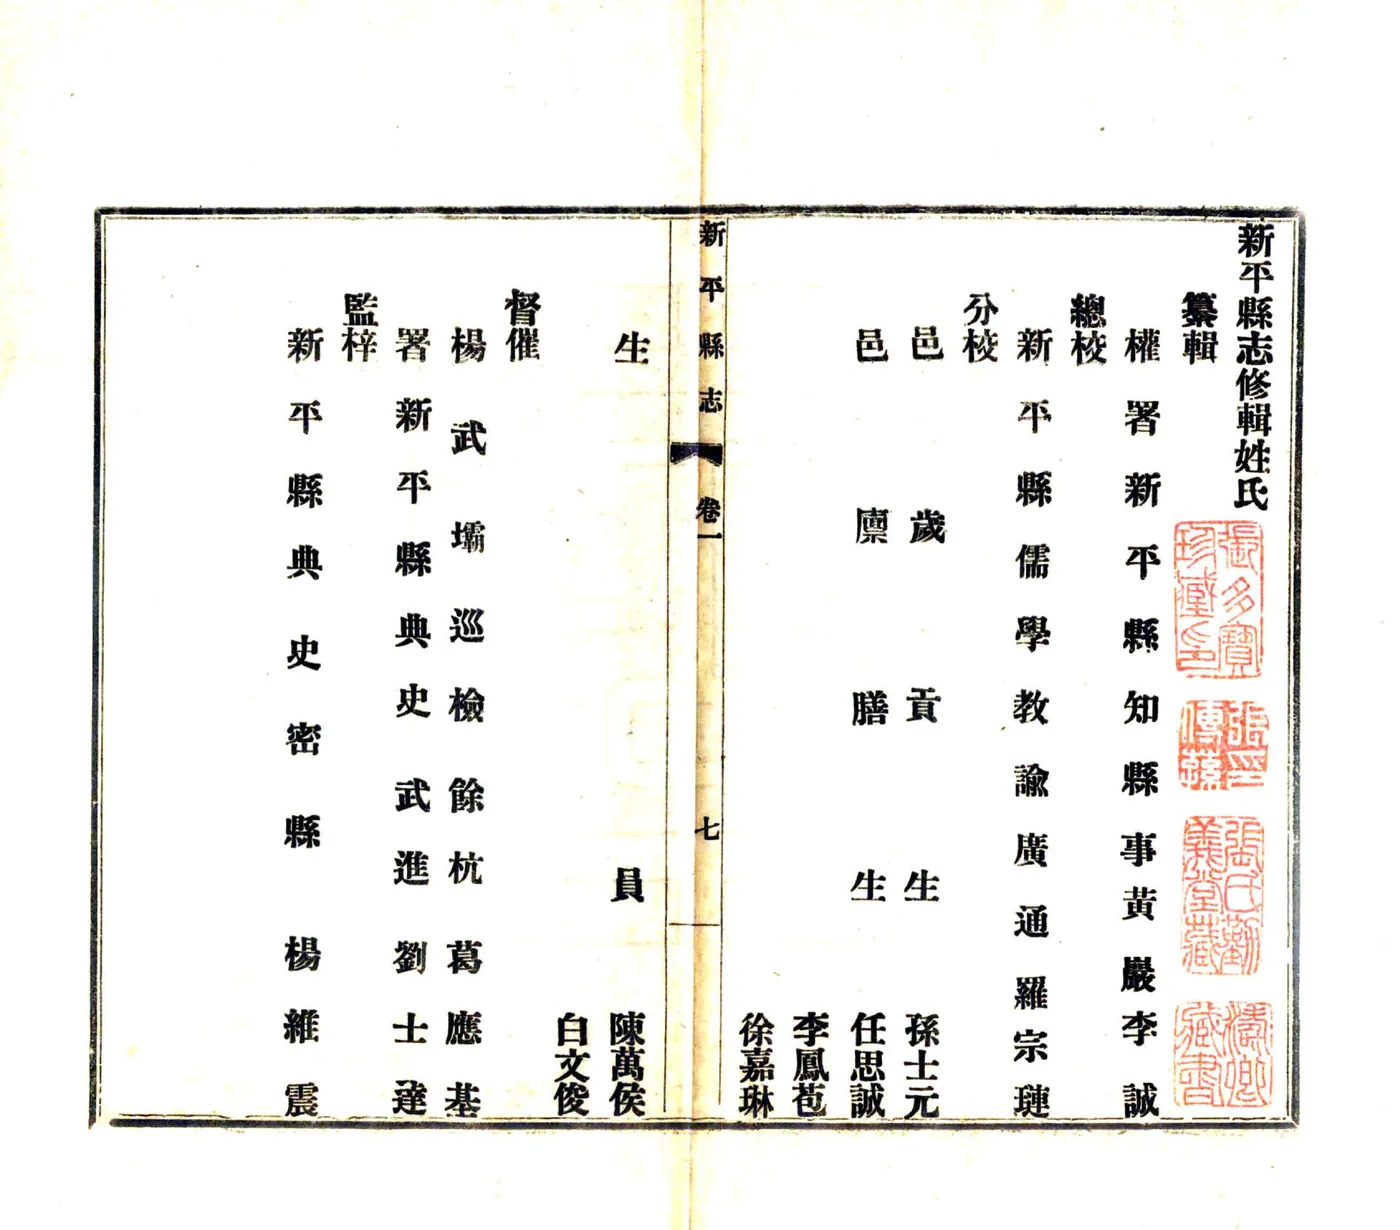 新平縣志修輯姓氏
纂輯
權署新平縣知縣事黃巖李誠
總校
新平縣儒學教諭廣通羅宗璉
分校
邑歲貢生孫士元
邑廩膳生任思誠
李鳳苞
徐嘉琳
新平縣志
卷一
七
生員陳萬侯
白文俊
督催
楊武壩巡檢餘杭葛應基
署新平縣典史武進劉士達
監梓
新平縣典史密縣楊維震
張多寶
珍藏印
張印
傳
張氏勤
義堂藏
濤卿
藏書